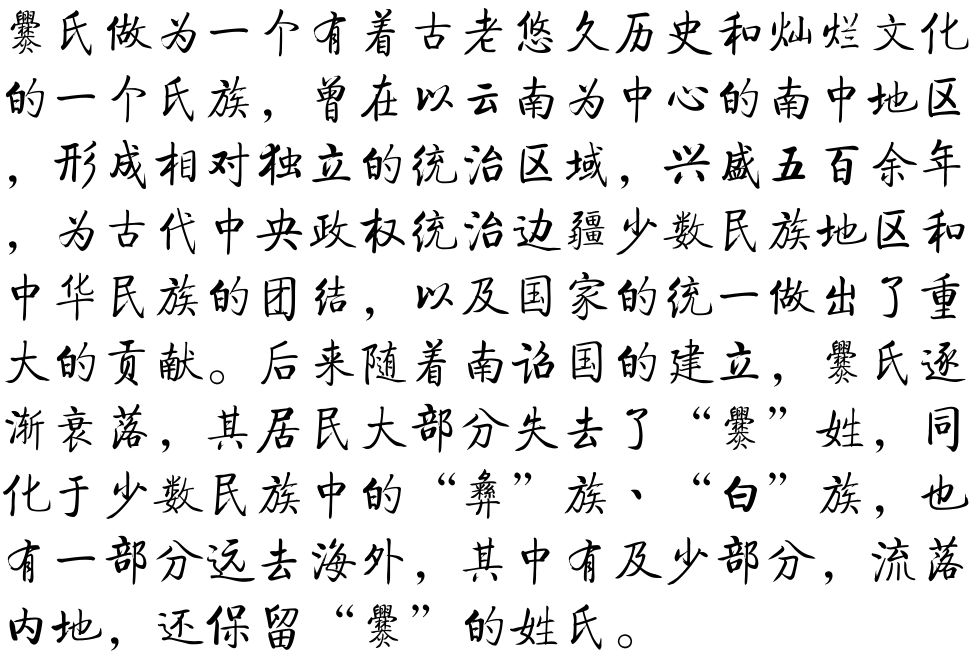 爨氏做为一个有着古老悠久历史和灿烂文化
的一个氏族，曾在以云南为中心的南中地区
，形成相对独立的统治区域，兴盛五百余年
，为古代中央政权统治边疆少数民族地区和
中华民族的团结，以及国家的统一做出了重
大的贡献。后来随着南诏国的建立，爨氏逐
渐衰落，其居民大部分失去了“爨”姓，同
化于少数民族中的“彝”族、“白”族，也
有一部分远去海外，其中有及少部分，流落
内地，还保留“爨”的姓氏。